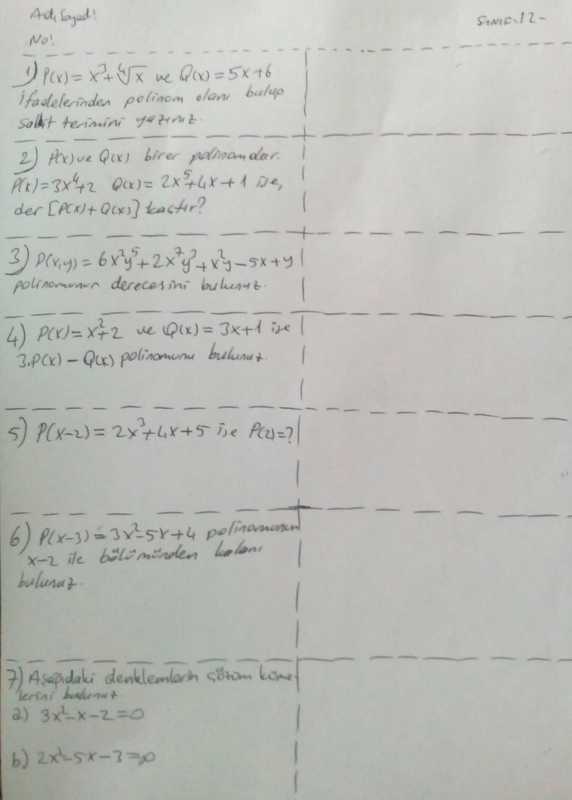 Adı, Soyadı:
Sınıf: 12-
No:
1) P(x) = x³ + ⁴√x ve Q(x) = 5x+6
ifadelerinden polinom olanı bulup
sabit terimini yazınız.
2) P(x) ve Q(x) birer polinomdur.
P(x) = 3x⁴+2 Q(x) = 2x⁵+4x+1 ise,
der [P(x) + Q(x)] kaçtır?
3) P(x,y) = 6x²y⁵ + 2x⁷y³ + x²y - 5x + y
polinomunun derecesini bulunuz.
4) P(x) = x²+2 ve Q(x) = 3x+1 ise
3.P(x) - Q(x) polinomunu bulunuz.
5) P(x-2) = 2x³+4x+5 ise P(2)=?
6) P(x-3) = 3x²-5x+4 polinomunun
x-2 ile bölümünden kalanı
bulunuz.
7) Aşağıdaki denklemlerin çözüm küme-
lerini bulunuz.
a) 3x²-x-2=0
b) 2x²-5x-3=0